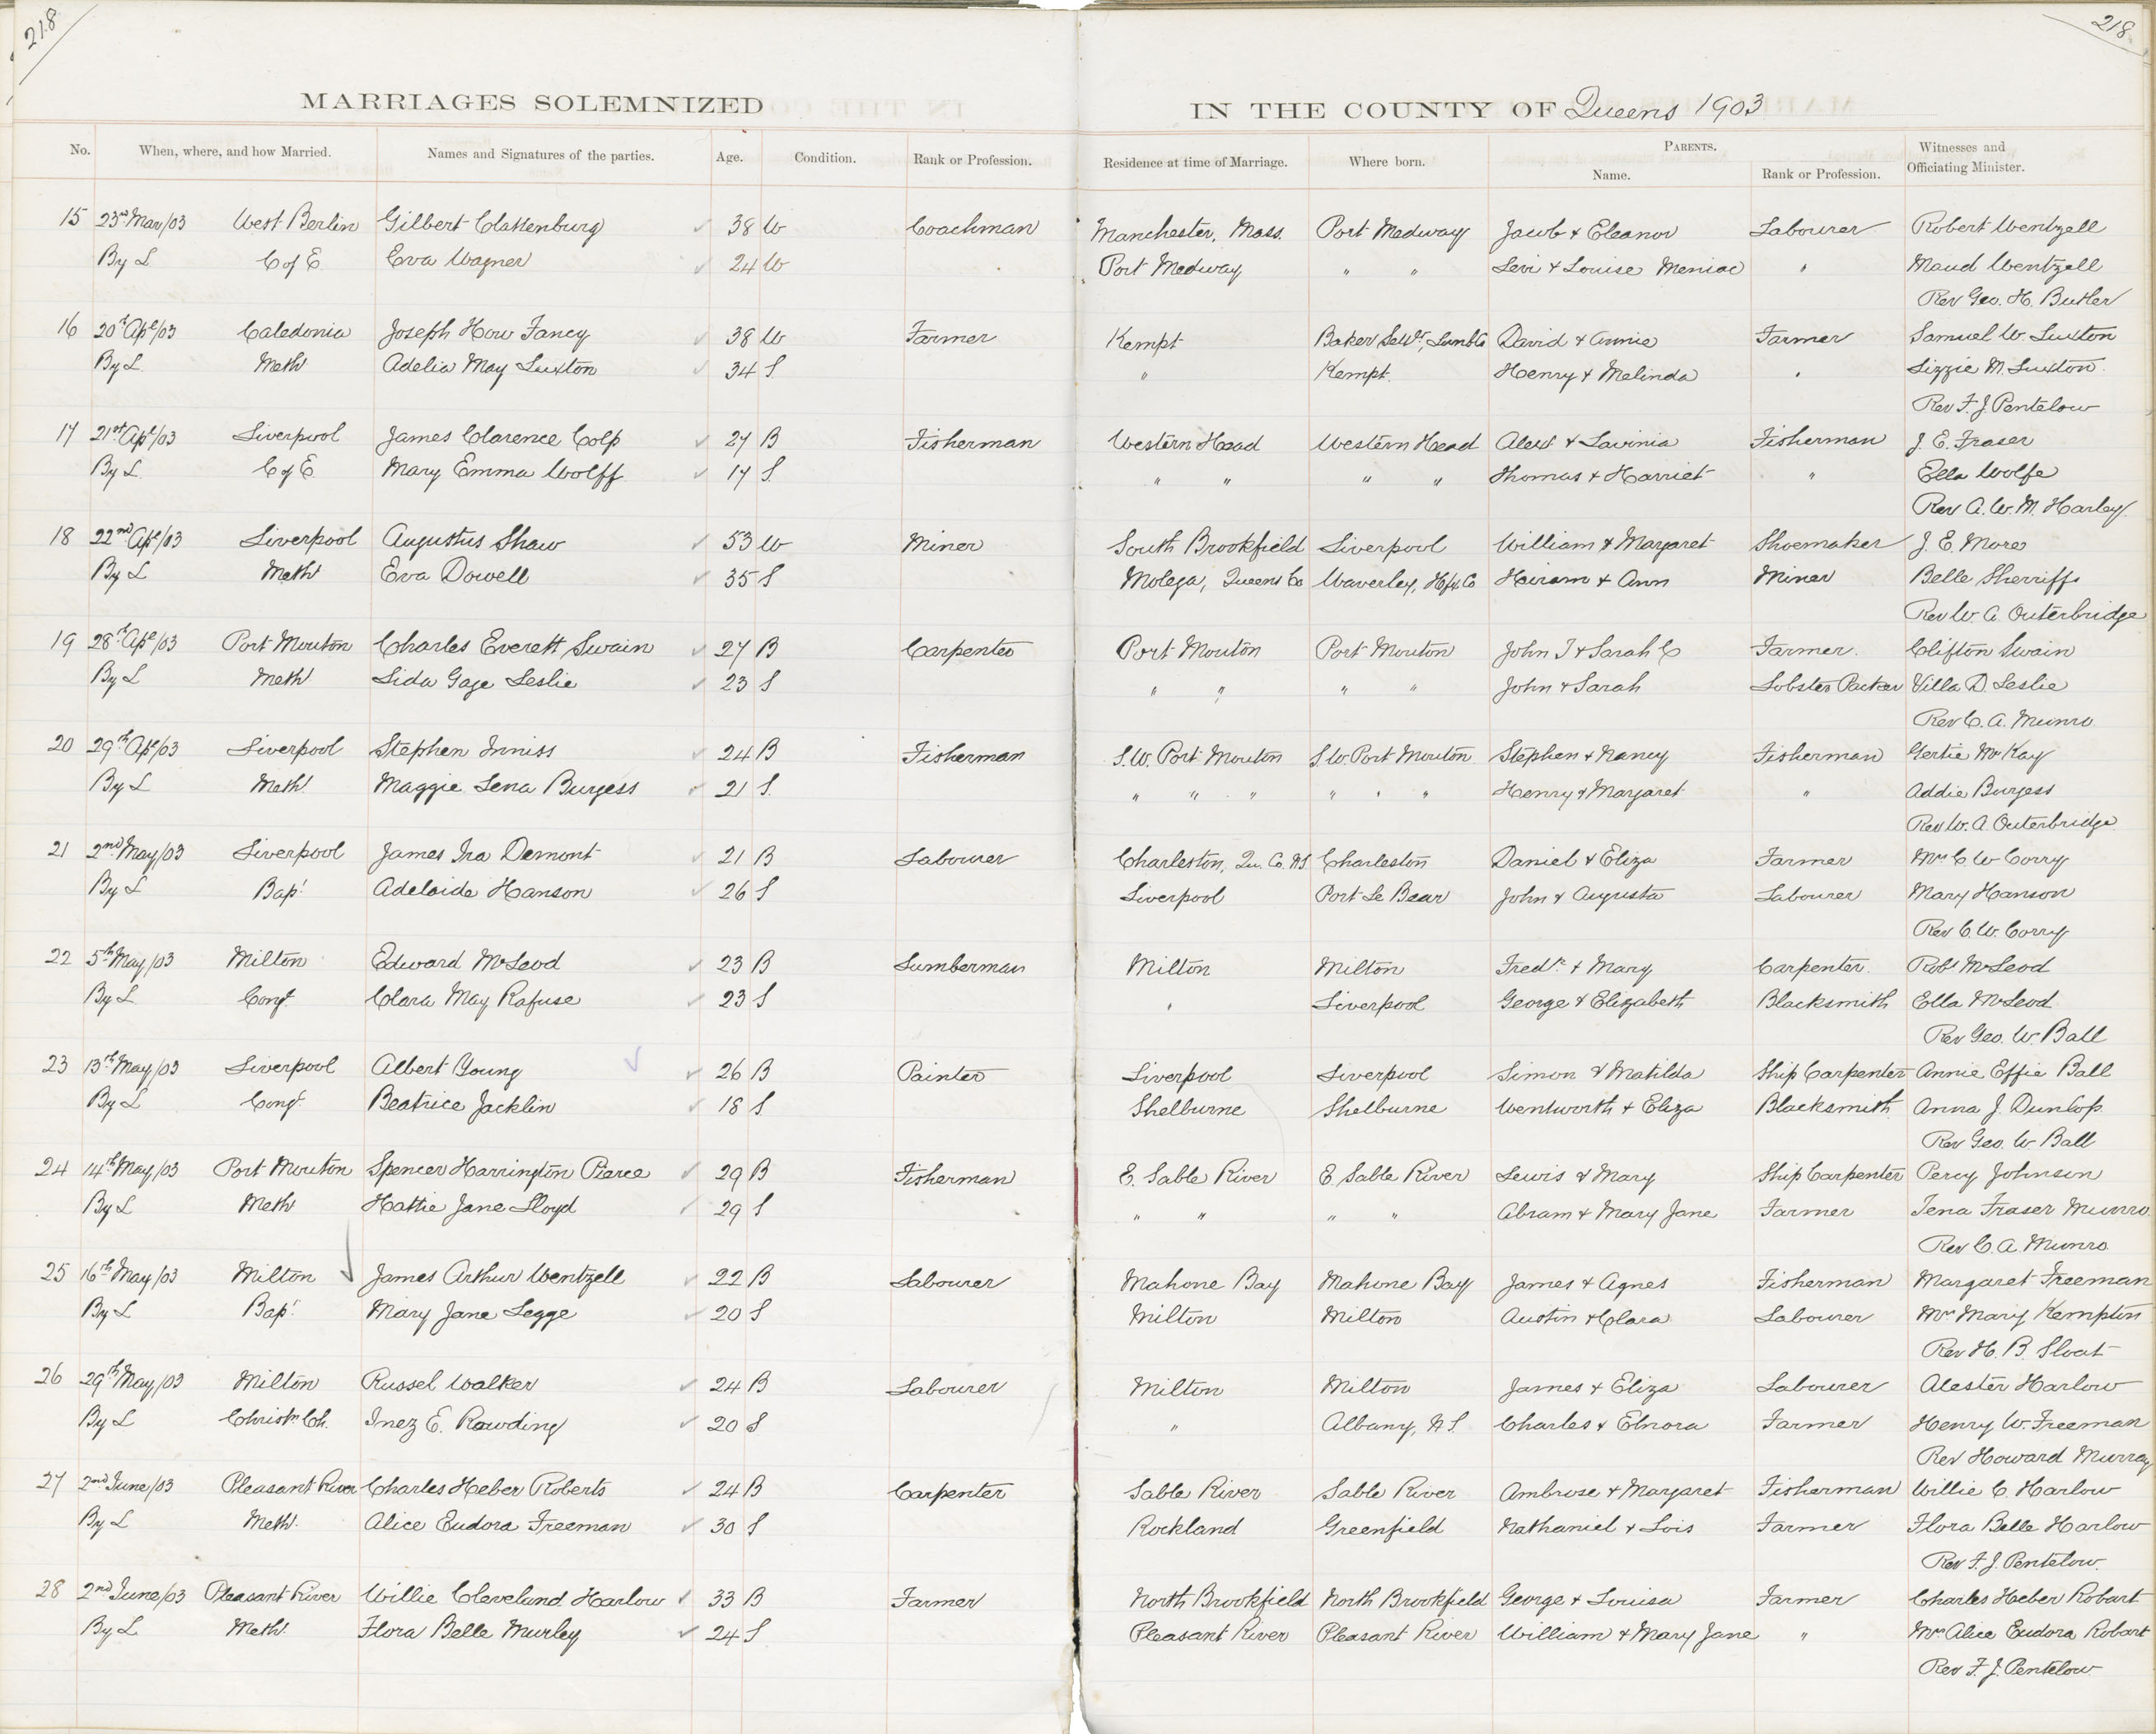 218
218
MARRIAGES SOLEMNIZED IN THE COUNTY OF Queens 1903
No. When, where, and how Married. Names and Signatures of the parties. Age. Condition. Rank or Profession. Residence at time of Marriage. Where born. PARENTS. Name. Rank or Profession. Witnesses and Officiating Minister.
15 23rd Mar/03 West Berlin Gilbert Clattenburg 38 W Coachman Manchester, Mass. Port Medway Jacob & Eleanor Labourer Robert Wentzell
By L C of E. Eva Wagner 24 W Port Medway " " Levi & Louise Meniac " Maud Wentzell
Rev Geo. H. Butler
16 20th Apl/03 Caledonia Joseph How Fancy 38 W Farmer Kempt Baker Set'., Lunb Co David & Annie Farmer Samuel W. Luxton
By L. Meth Adelia May Luxton 34 S. " Kempt. Henry & Melinda " Lizzie M. Luxton.
Rev F. J. Pentelow
17 21st Apl/03 Liverpool James Clarence Colp 27 B Fisherman Western Head Western Head Alexr & Lavinia Fisherman J. E. Fraser
By L. C of E. Mary Emma Wolff 17 S. " " " " Thomas & Harriet " Ella Wolfe
Rev A. W. M. Harley.
18 22nd Apl/03 Liverpool Augustus Shaw 53 W Miner South Brookfield Liverpool William & Margaret Shoemaker J. E. More
By L Meth Eva Dowell 35 S Molega, Queens Co Waverley, Hfx Co Hiram & Ann Miner Belle Sherriffs
Rev W. A. Outerbridge
19 28th Apl/03 Port Mouton Charles Everett Swain 27 B Carpenter Port Mouton Port Mouton John T & Sarah C Farmer. Clifton Swain
By L Meth. Lida Gage Leslie 23 S " " " " John & Sarah Lobster Packer Villa D. Leslie
Rev C. A. Munro
20 29th Apl/03 Liverpool Stephen Inniss 24 B Fisherman S.W. Port Mouton S.W. Port Mouton Stephen & Nancy Fisherman Gertie McKay
By L Meth. Maggie Lena Burgess 21 S. " " " " " " Henry & Margaret " Addie Burgess
Rev W. A. Outerbridge
21 2nd May/03 Liverpool James Ira Demont 21 B Labourer Charleston, Qu. Co. N.S. Charleston Daniel & Eliza Farmer Mrs C W Corry
By L Bapt. Adelaide Hanson 26 S Liverpool Port Le Bear John & Augusta Labourer Mary Hanson
Rev C. W. Corry
22 5th May/03 Milton Edward McLeod 23 B Lumberman Milton Milton Fredk. & Mary Carpenter. Robt McLeod
By L Congl. Clara May Rafuse 23 S " Liverpool George & Elizabeth Blacksmith Ella McLeod
Rev Geo. W. Ball
23 13th May/03 Liverpool Albert Young 26 B Painter Liverpool Liverpool Simon & Matilda Ship Carpenter Annie Effie Ball
By L Congl. Beatrice Jacklin 18 S Shelburne Shelburne Wentworth & Eliza Blacksmith Anna J. Dunlop.
Rev Geo. W. Ball
24 14th May/03 Port Mouton Spencer Harrington Pierce 29 B Fisherman E. Sable River E. Sable River Lewis & Mary Ship Carpenter Percy Johnson
By L Meth Hattie Jane Lloyd 29 S " " " " Abram & Mary Jane Farmer Tena Fraser Munro
Rev C. A. Munro
25 16th May/03 Milton James Arthur Wentzell 22 B Labourer Mahone Bay Mahone Bay James & Agnes Fisherman Margaret Freeman
By L Bapt. Mary Jane Legge 20 S Milton Milton Austin & Clara Labourer Mrs Mary Kempton
Rev H. B. Sloat
26 29th May/03 Milton Russel Walker 24 B Labourer Milton Milton James & Eliza Labourer Alester Harlow
By L Christn Ch. Inez E. Rowding 20 S " Albany, N.S. Charles & Elnora Farmer Henry W. Freeman
Rev Howard Murray
27 2nd June/03 Pleasant River Charles Heber Roberts 24 B Carpenter Sable River Sable River Ambrose & Margaret Fisherman Willie C. Harlow
By L Meth. Alice Eudora Freeman 30 S Rockland Greenfield Nathaniel & Lois Farmer Flora Belle Harlow
Rev F. J. Pentelow.
28 2nd June/03 Pleasant River Willie Cleveland Harlow 33 B Farmer North Brookfield North Brookfield George & Louisa Farmer Charles Heber Robart
By L Meth. Flora Belle Murley 24 S Pleasant River Pleasant River William & Mary Jane " Mrs Alice Eudora Robart
Rev F. J. Pentelow